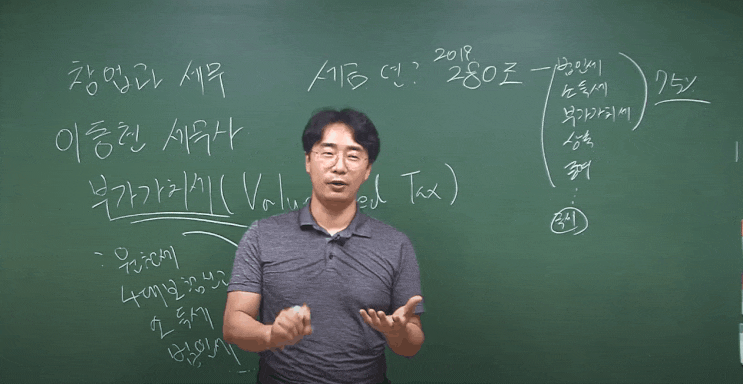 창업과 세무
이동현 세무사
부가가치세 (Valu ed Tax)
: 원천세
4대보험신고
소득세
법인세
세금 연? 2018 280조 -
법인세
소득세
부가가치세
상속
증여
:
국세
75%